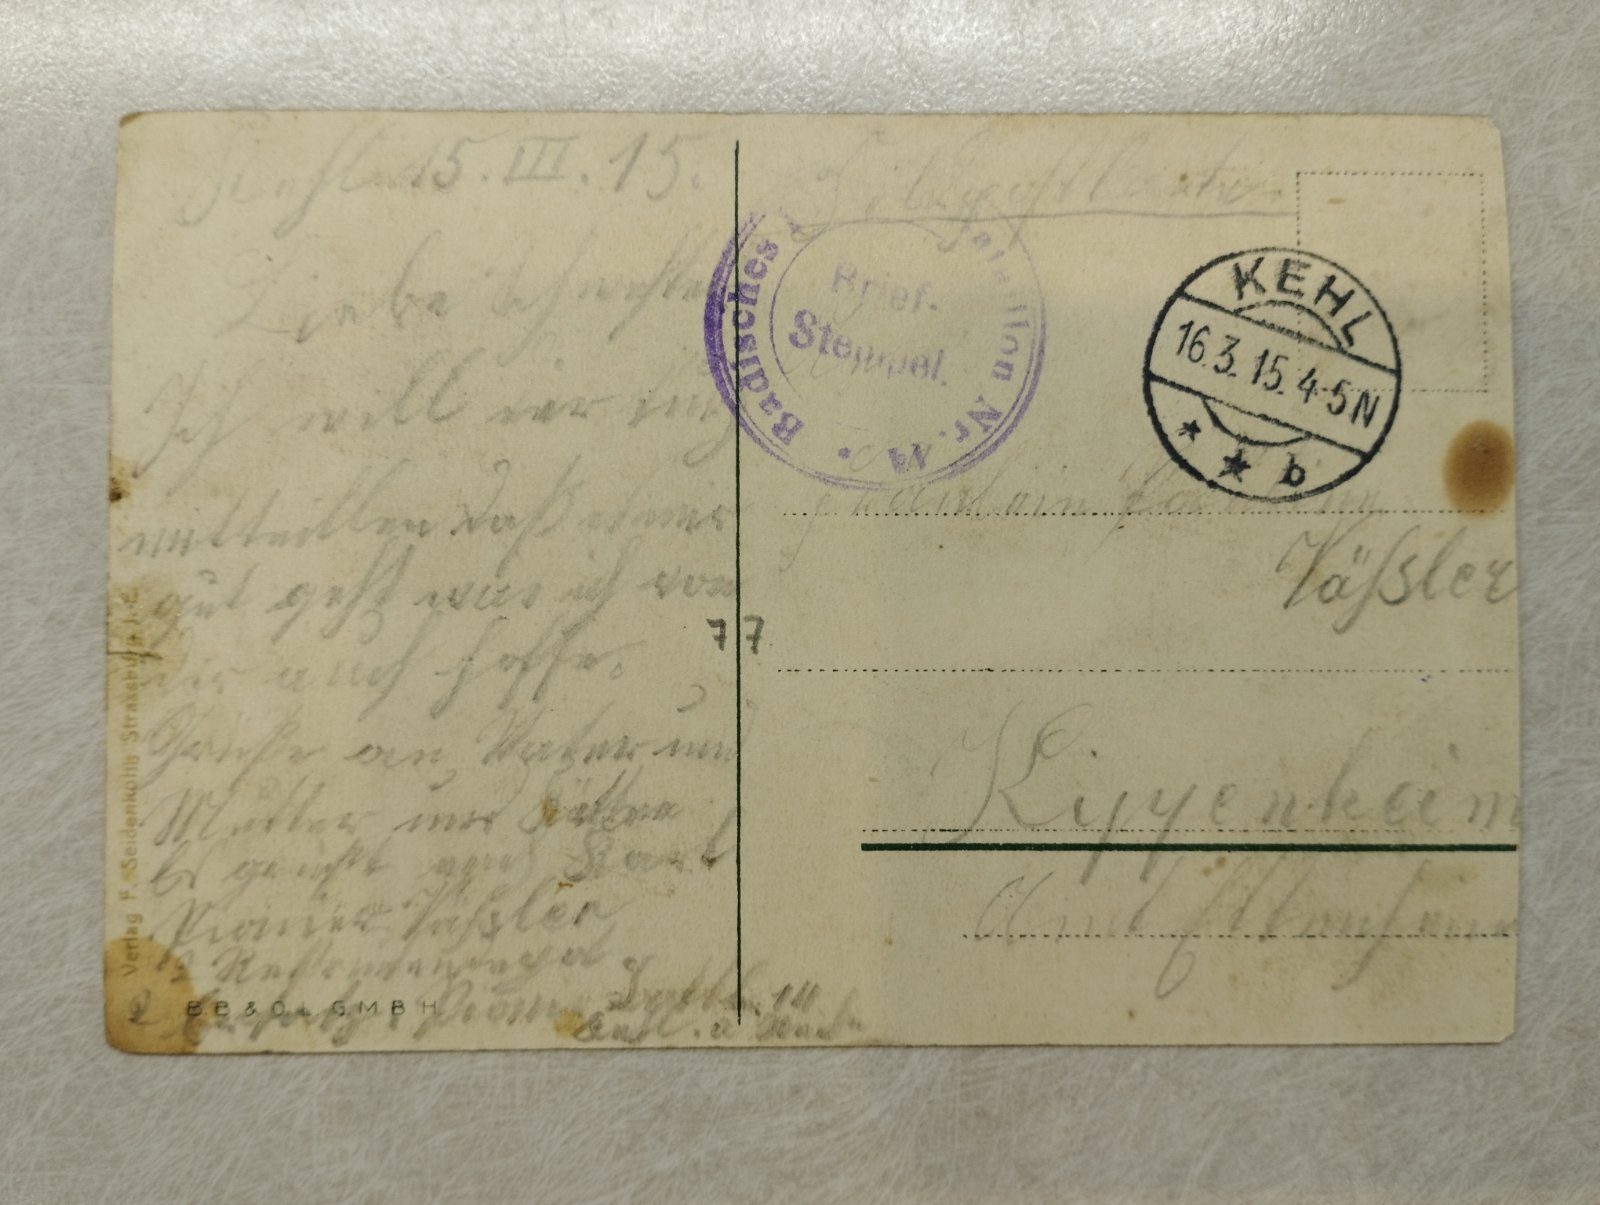 Kehl 15. III. 15.
Liebe Schwester
Ich will dir
mitteillen daß es mir
gut geht was ich von
dir auch hoffe.
Grüße an Vater und
Mutter und
Es grüßt euch Karl
Pionier Vässler
2 Rekrutendepot
Ersatz Pionier Batl. 14
Kehl. a Rhein
Feldpostkarte
Badisches Nr. 14.
Brief-
Stempel.
KEHL
16.3.15.4-5N
* * b
Fräulein
Vässler
Kippenheim
Amt Ettenheim
77
Verlag F. Seidenkohs Strassburg i. E.
BB&O.L.GMBH